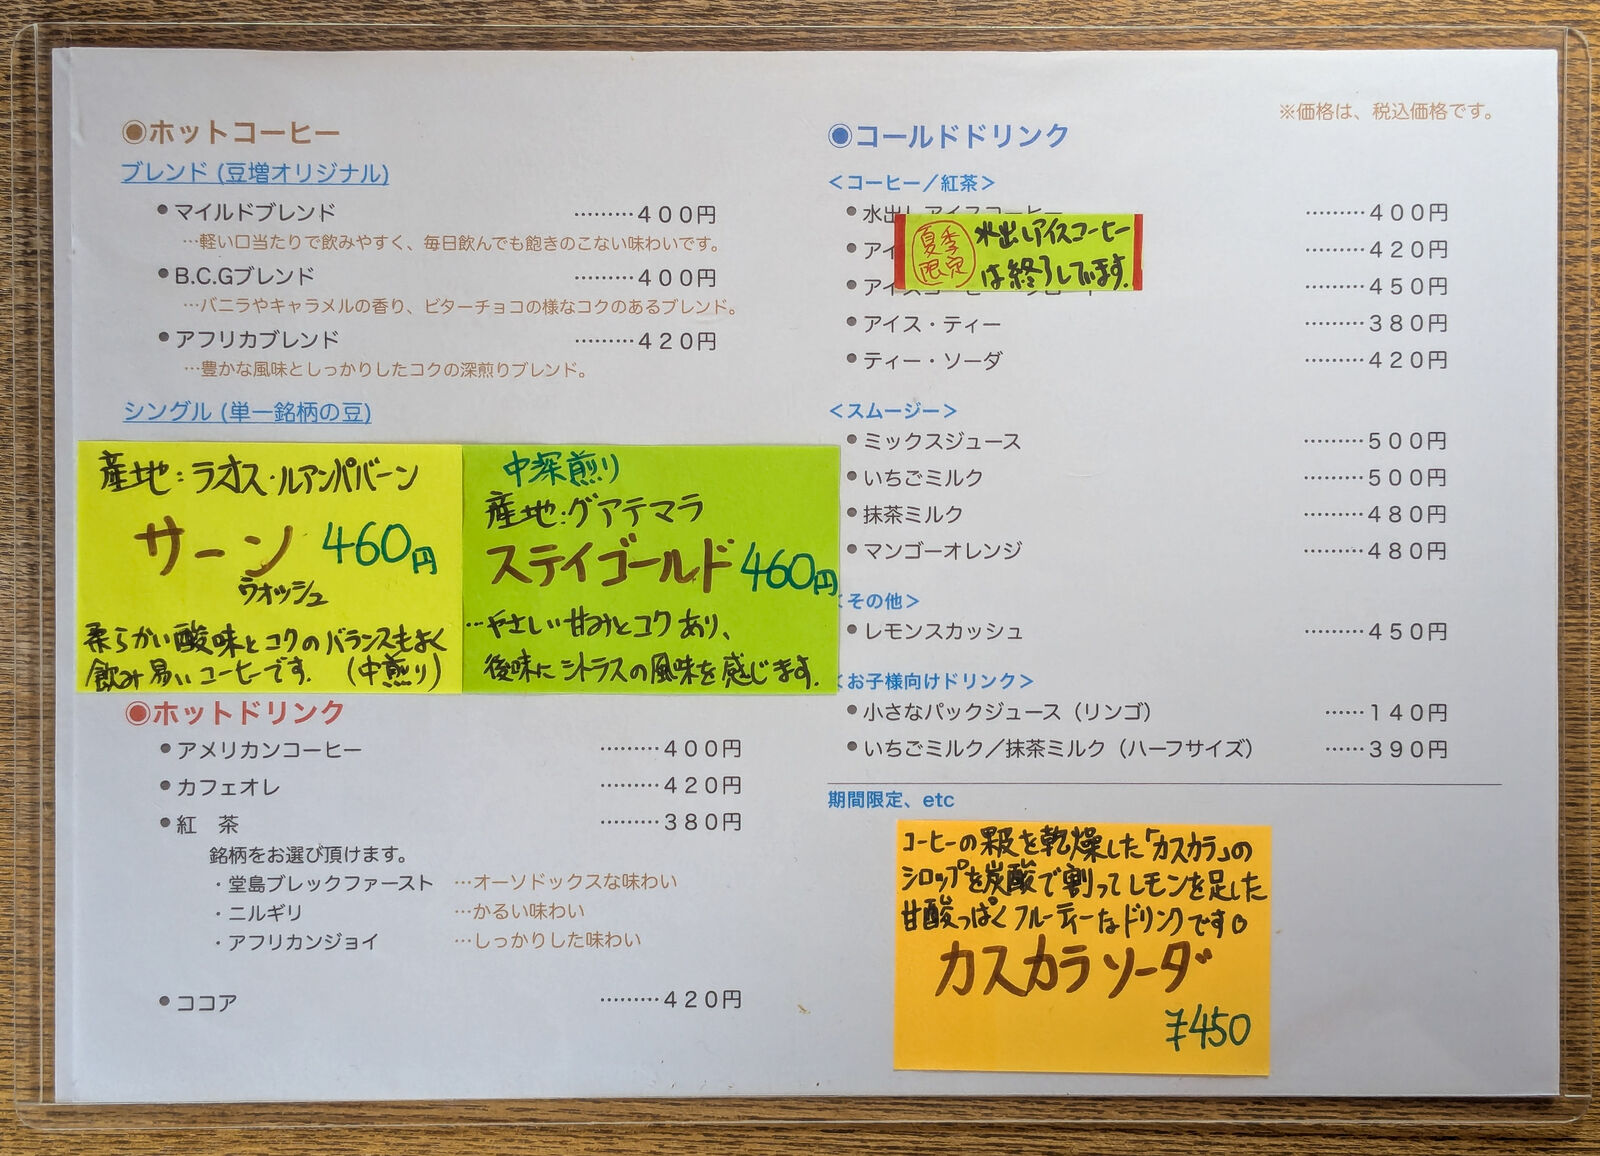 ※価格は、税込価格です。
◉ホットコーヒー
ブレンド (豆増オリジナル)
●マイルドブレンド ………400円
…軽い口当たりで飲みやすく、毎日飲んでも飽きのこない味わいです。
●B.C.Gブレンド ………400円
…バニラやキャラメルの香り、ビターチョコの様なコクのあるブレンド。
●アフリカブレンド ………420円
…豊かな風味としっかりしたコクの深煎りブレンド。
シングル (単一銘柄の豆)
産地:ラオス・ルアンパバーン
サーン 460円
ウォッシュ
柔らかい酸味とコクのバランスもよく
飲み易いコーヒーです。 (中煎り)
中深煎り
産地:グアテマラ
ステイゴールド 460円
…やさしい甘みとコクあり、
後味にシトラスの風味を感じます。
◉ホットドリンク
●アメリカンコーヒー ………400円
●カフェオレ ………420円
●紅 茶 ………380円
銘柄をお選び頂けます。
・堂島ブレックファースト …オーソドックスな味わい
・ニルギリ …かるい味わい
・アフリカンジョイ …しっかりした味わい
●ココア ………420円
◉コールドドリンク
＜コーヒー／紅茶＞
●水出しアイスコーヒー ………400円
夏季限定 水出しアイスコーヒー
は終了しています.
●アイ ………420円
●アイスコーヒー ………450円
●アイス・ティー ………380円
●ティー・ソーダ ………420円
＜スムージー＞
●ミックスジュース ………500円
●いちごミルク ………500円
●抹茶ミルク ………480円
●マンゴーオレンジ ………480円
＜その他＞
●レモンスカッシュ ………450円
＜お子様向けドリンク＞
●小さなパックジュース（リンゴ） ……140円
●いちごミルク／抹茶ミルク（ハーフサイズ） ……390円
期間限定、etc
コーヒーの果皮を乾燥した「カスカラ」の
シロップを炭酸で割ってレモンを足した
甘酸っぱくフルーティーなドリンクです。
カスカラソーダ
¥450